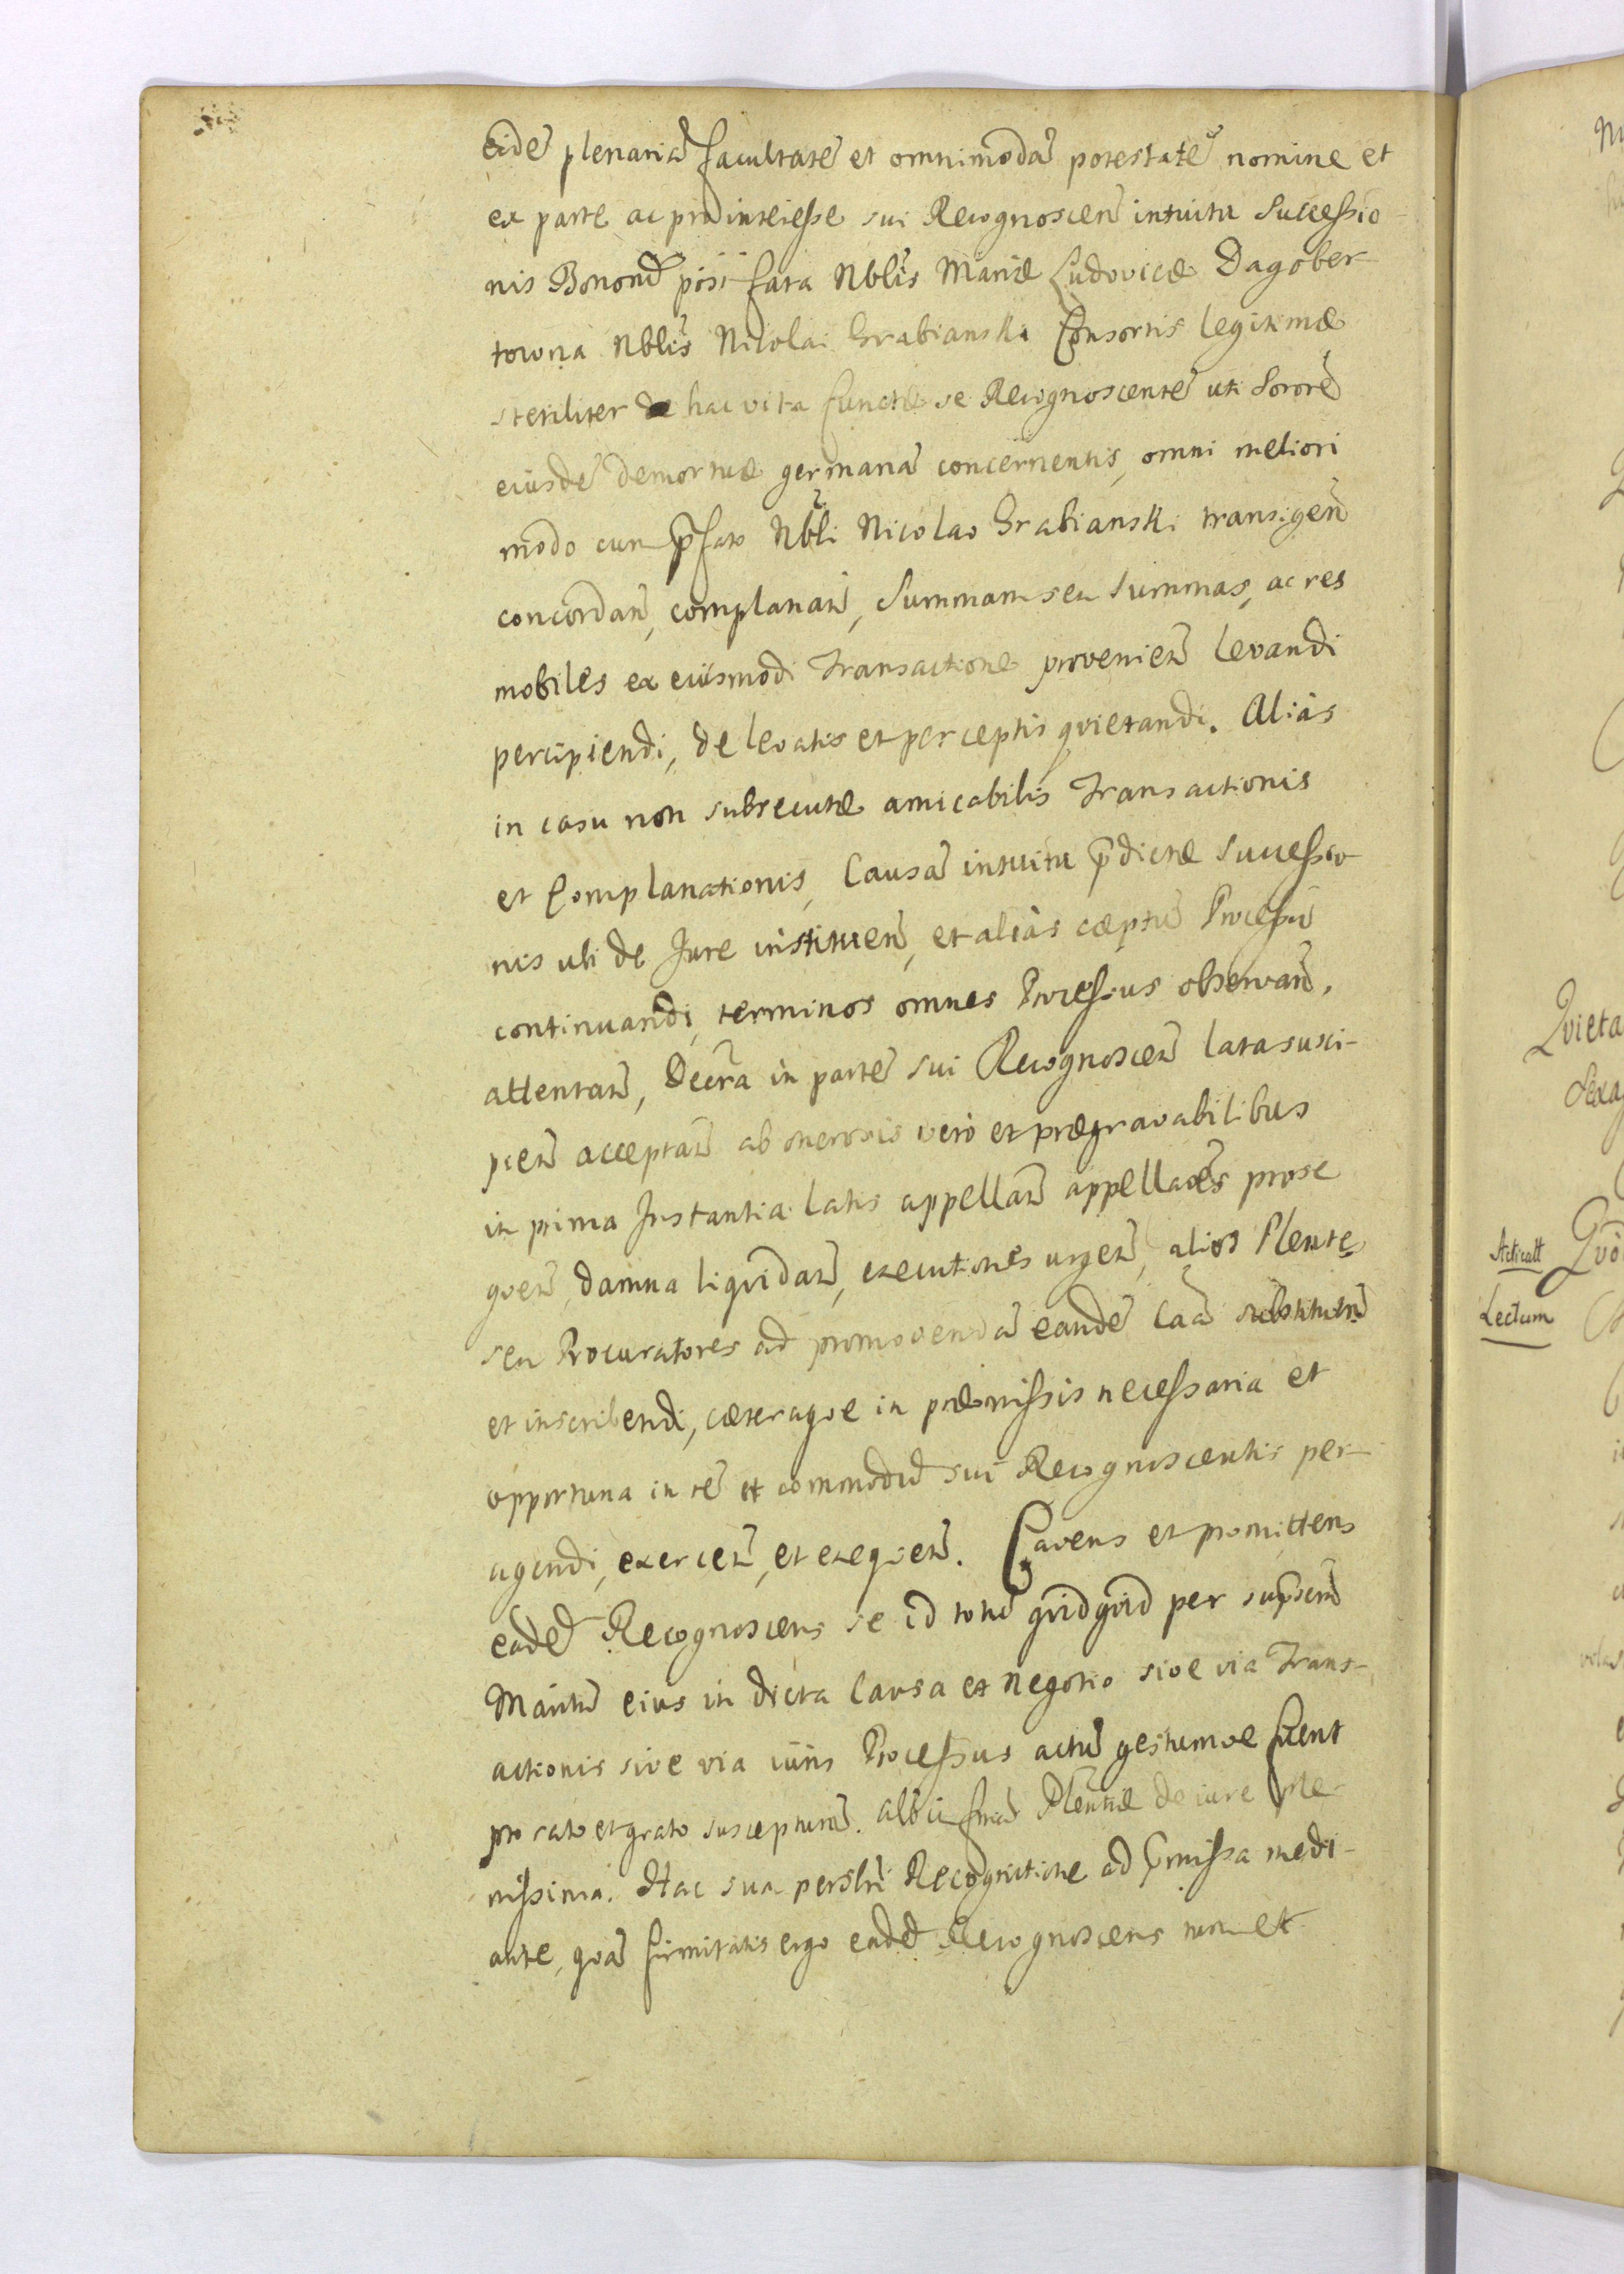 eidē plenariā facultatē et omnimodā potestatē nomine et
ex parte ac pro interesse sui Recognoscen̄ intuitu Successio-
nis Bonorū post fata Nblis Mariæ Ludovicæ Dagober-
towna Nblis Nicolai Grabianski Consortis legitimæ
steriliter de hac vita functæ se Recognoscentē uti Sororē
eiusdē demortuæ germanā concernentis, omni meliori
modo cum p̄fato Nbli Nicolao Grabianski transigen̄
concordan̄, complanan̄, Summam seu Summas, ac res
mobiles ex eiusmodi Transactione provenien̄ levandi
percipiendi, de levatis et perceptis qvietandi. Aliàs
in casu non subsecutæ amicabilis Transactionis
et Complanationis, Causā intuitu p̄dictæ Successio-
nis ubi de Jure instituen̄, et aliàs cæptū Processū
continuandi, terminos omnes Processus observan̄,
attentan̄, Decr̄a in partē sui Recognoscen̄ lata susci-
pien̄ acceptan̄ ab onerosis verò et prægravabilibus
in prima Instantia latis appellan̄ appellaōēs prose
qven̄, damna liqvidan̄, executiones urgen̄, alios Plente
seu Procuratores ad promovendā eandē Caā substituen̄
et inscribendi, cæteraqve in præmissis necessaria et
opportuna in rē et commodū sui Recognoscentis per-
agendi, exercen̄, et exeqven̄. Cavens et promittens
eadē Recognoscens se id totū qvidqvid per sup̄scrū
Maritū eius in dicta Causa et negotio sive via Trans-
actionis sive via iuris Processus actū gestumve fuerit
pro rato et grato suscepturā. 
nissima. Hac sua persnli Recognitione ad p̄missa medi-
ante, qvā firmitatis ergo eadē Recognoscens 
Acticatt
Lectum
Qvieta